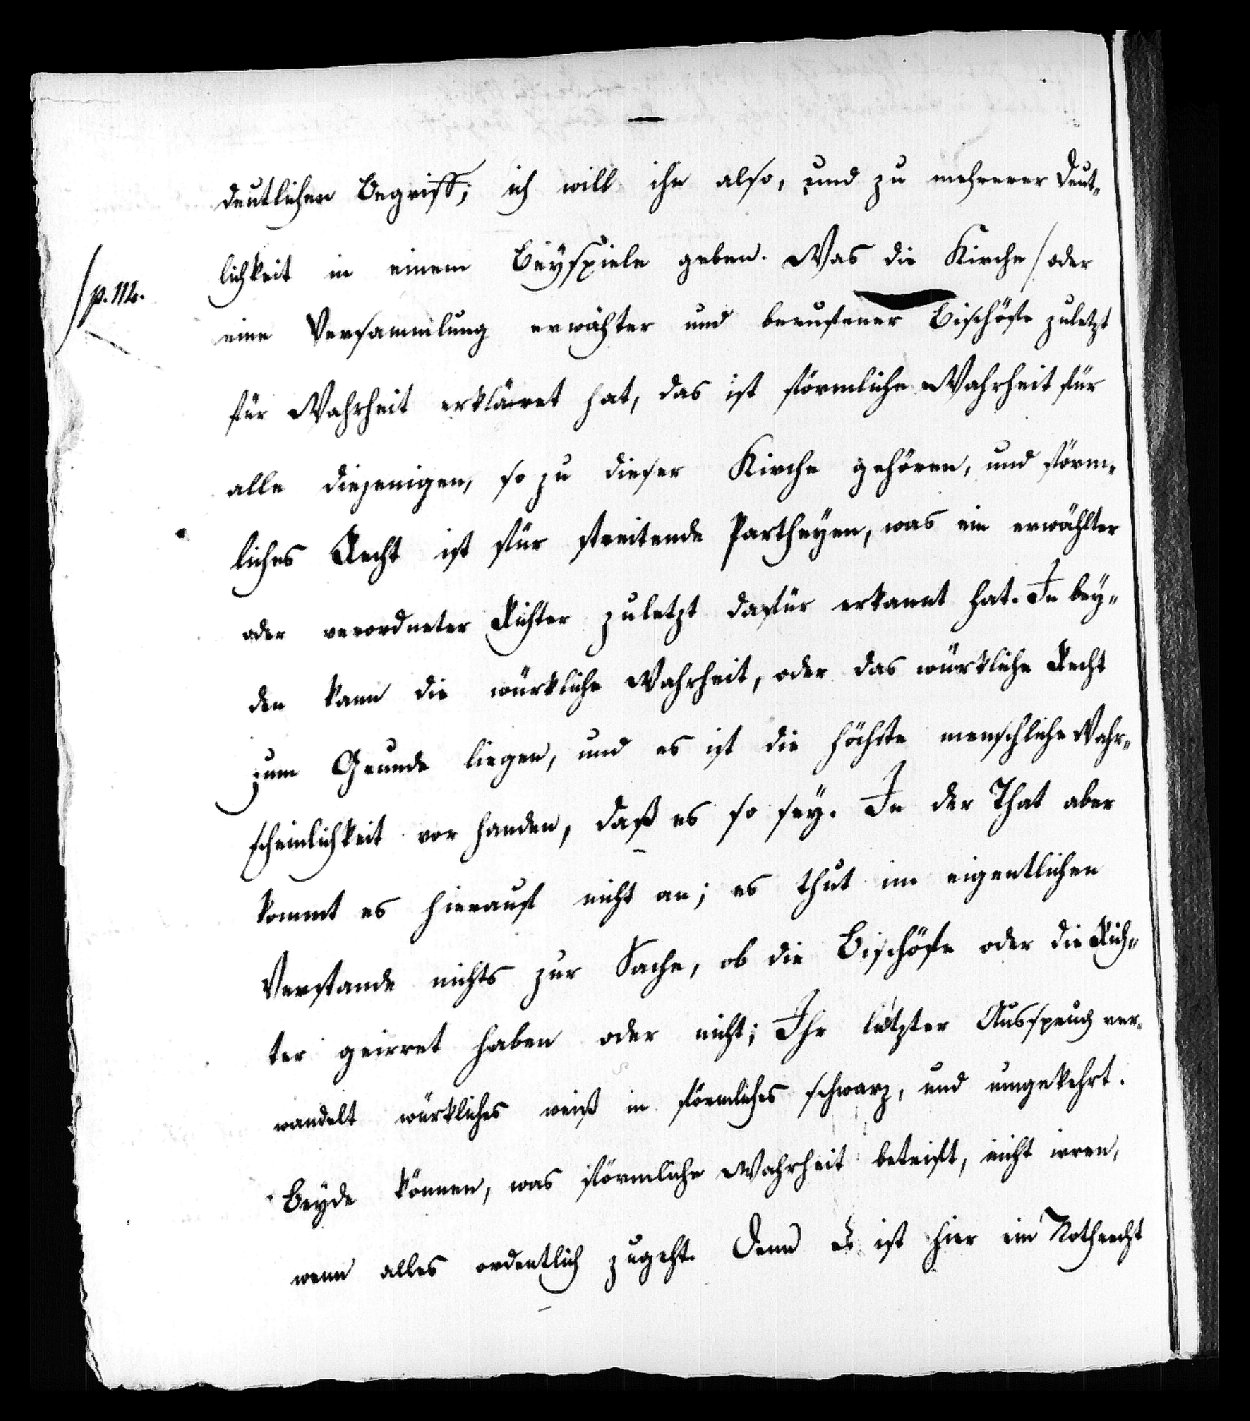 deutlichen Begriff; ich will ihn also, und zu mehrerer Deut-
lichkeit in einem Beyspiele geben. Was die Kirche / oder
/p. 112.
eine Versammlung erwählter und berufener Bischöfe zuletzt
für Wahrheit erkläret hat, das ist förmliche Wahrheit für
alle diejenigen, so zu dieser Kirche gehören, und förm-
liches Recht ist für streitende Partheyen, was ein erwählter
oder verordneter Richter zuletzt dafür erkannt hat. In bey-
den kann die würkliche Wahrheit, oder das würkliche Recht
zum Grunde liegen, und es ist die höchste menschliche Wahr-
scheinlichkeit vor handen, daß es so sey. In der That aber
kommt es hierauf nicht an; es thut im eigentlichen
Verstande nichts zur Sache, ob die Bischöfe oder die Rich-
ter geirret haben oder nicht; Ihr letzter Ausspruch ver-
wandelt würkliches weiß in förmliches schwarz, und umgekehrt.
Beyde können, was förmliche Wahrheit betrift, nicht irren,
wenn alles ordentlich zugeht. Denn Es ist hier ein Nothrecht